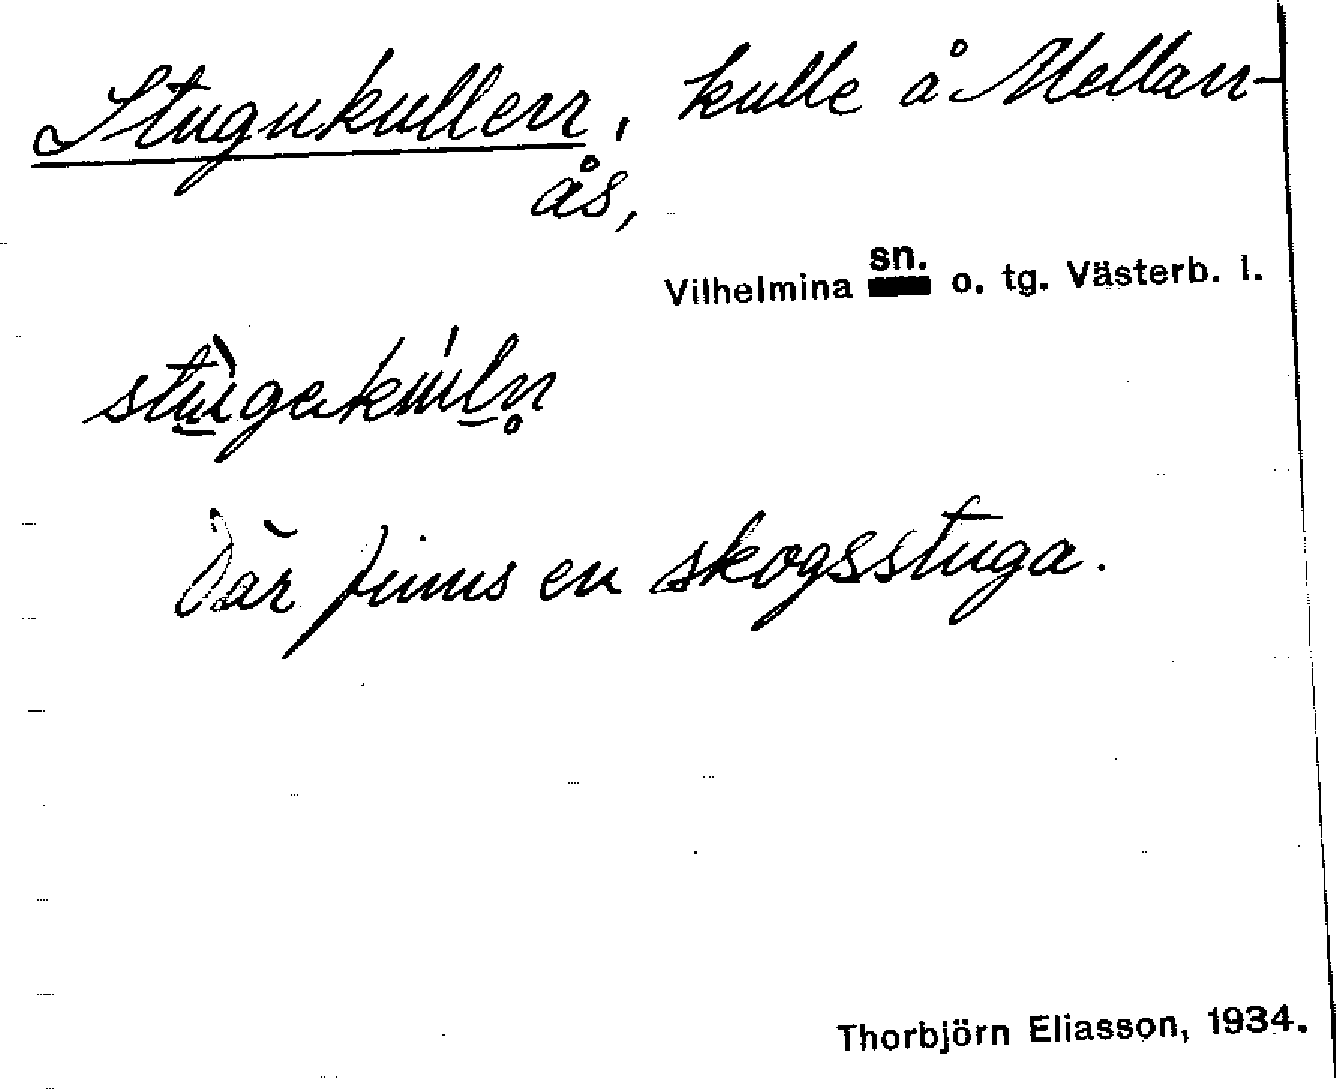 Stugukullen, kulle å Mellan-
ås,
Vilhelmina sn. o. tg. Västerb. l.
Där finns en skogsstuga.
Thorbjörn Eliasson, 1934.